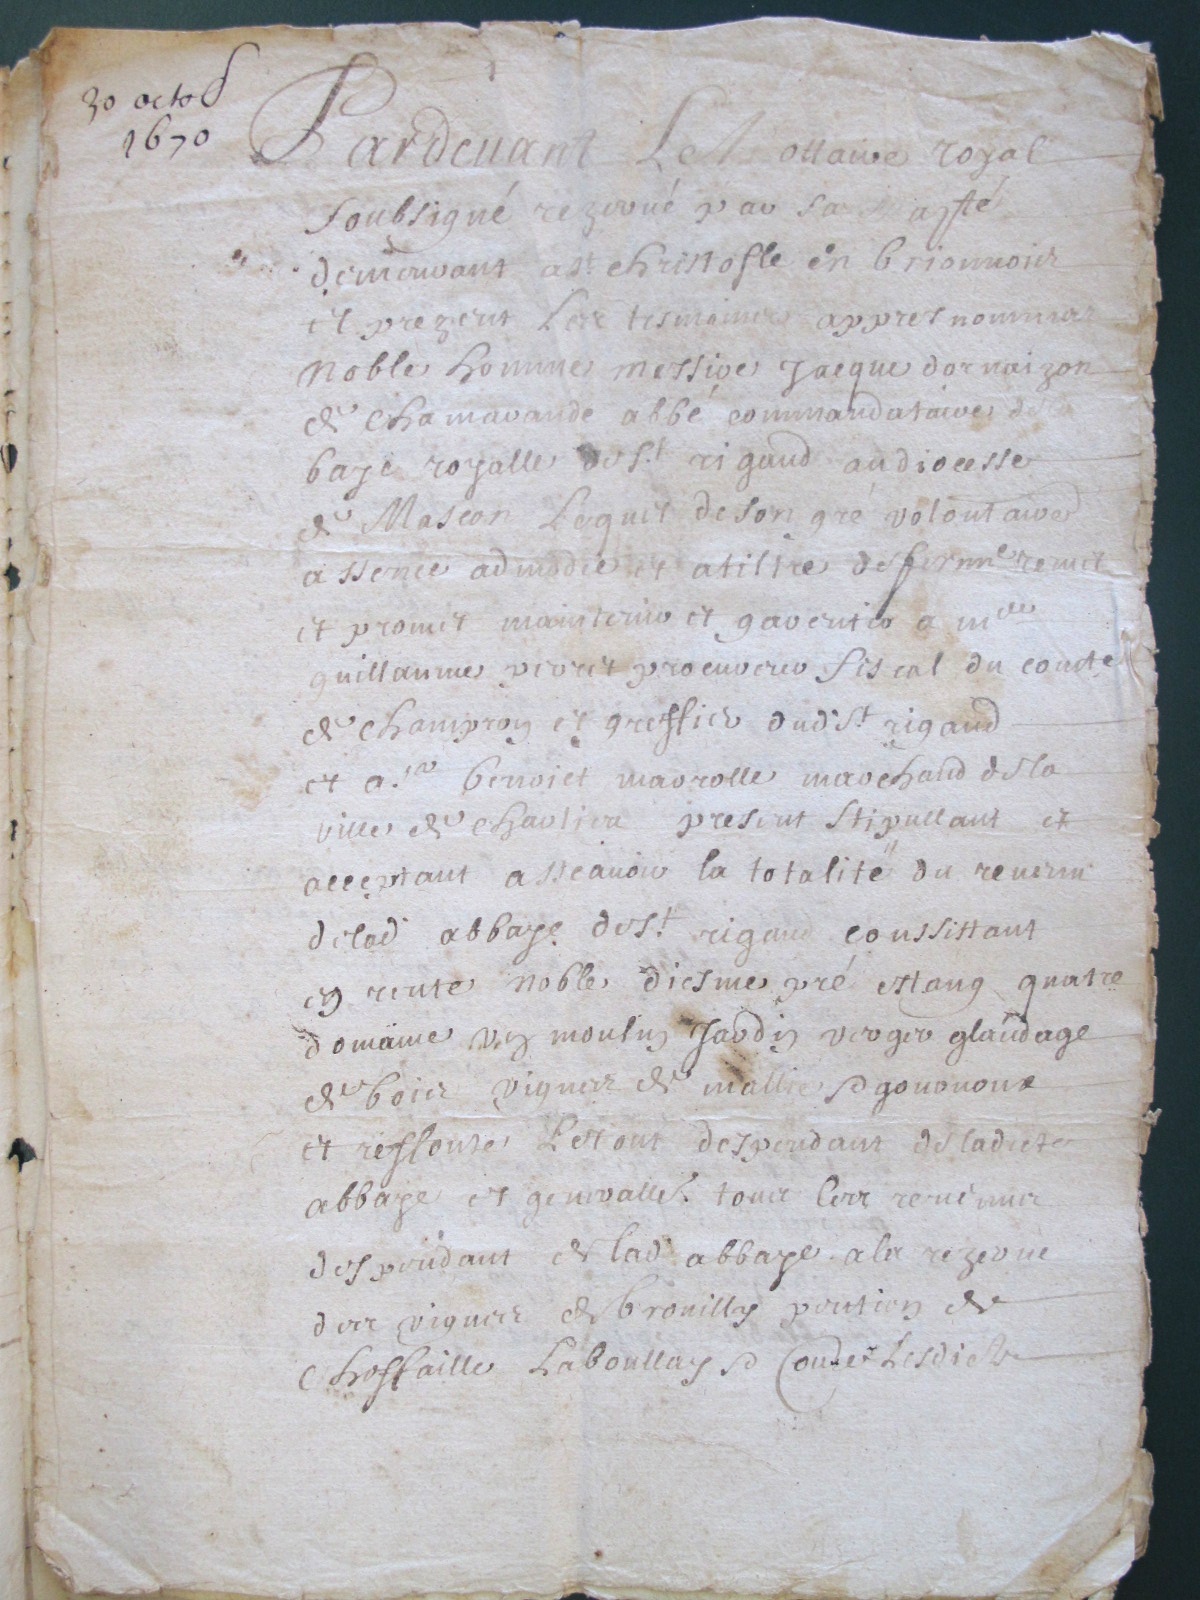 30 octob
1670
Pardeuant Le Nottaire royal
soubsigné rezerué par sa Majsté
demeurant a st christofle en brionnois
et prezent Les tesmoins appres nommes
noble homme messire Jacque dornaizon
de Chamarande abbé commandataire de la
baye royalle de St rigaud au diocesse
de Mascon Lequel de son gré volontaire
assence admodie et a tiltre de ferme remet
et promet maintenir et garentir a me
guillaume perret procureur fiscal du comté
de Champron et greffier dud St rigaud
et a sr benoict marolle marchand de la
ville de Charlieu present stipullant et
acceptant asscauoir la totalité du reuenu
de lad abbaye de St rigaudconsistant
en rente noble diesme pré estang quatre
domaine un moulin Jardin verger glandage
de bois vignes de mallie
et Le tout despendant de ladicte
abbaye et generallet tous les reuenus
despendant de lad abbaye a la rezerue
des vignes de brouilly pention de
Choffaille La boullay Lesdicts